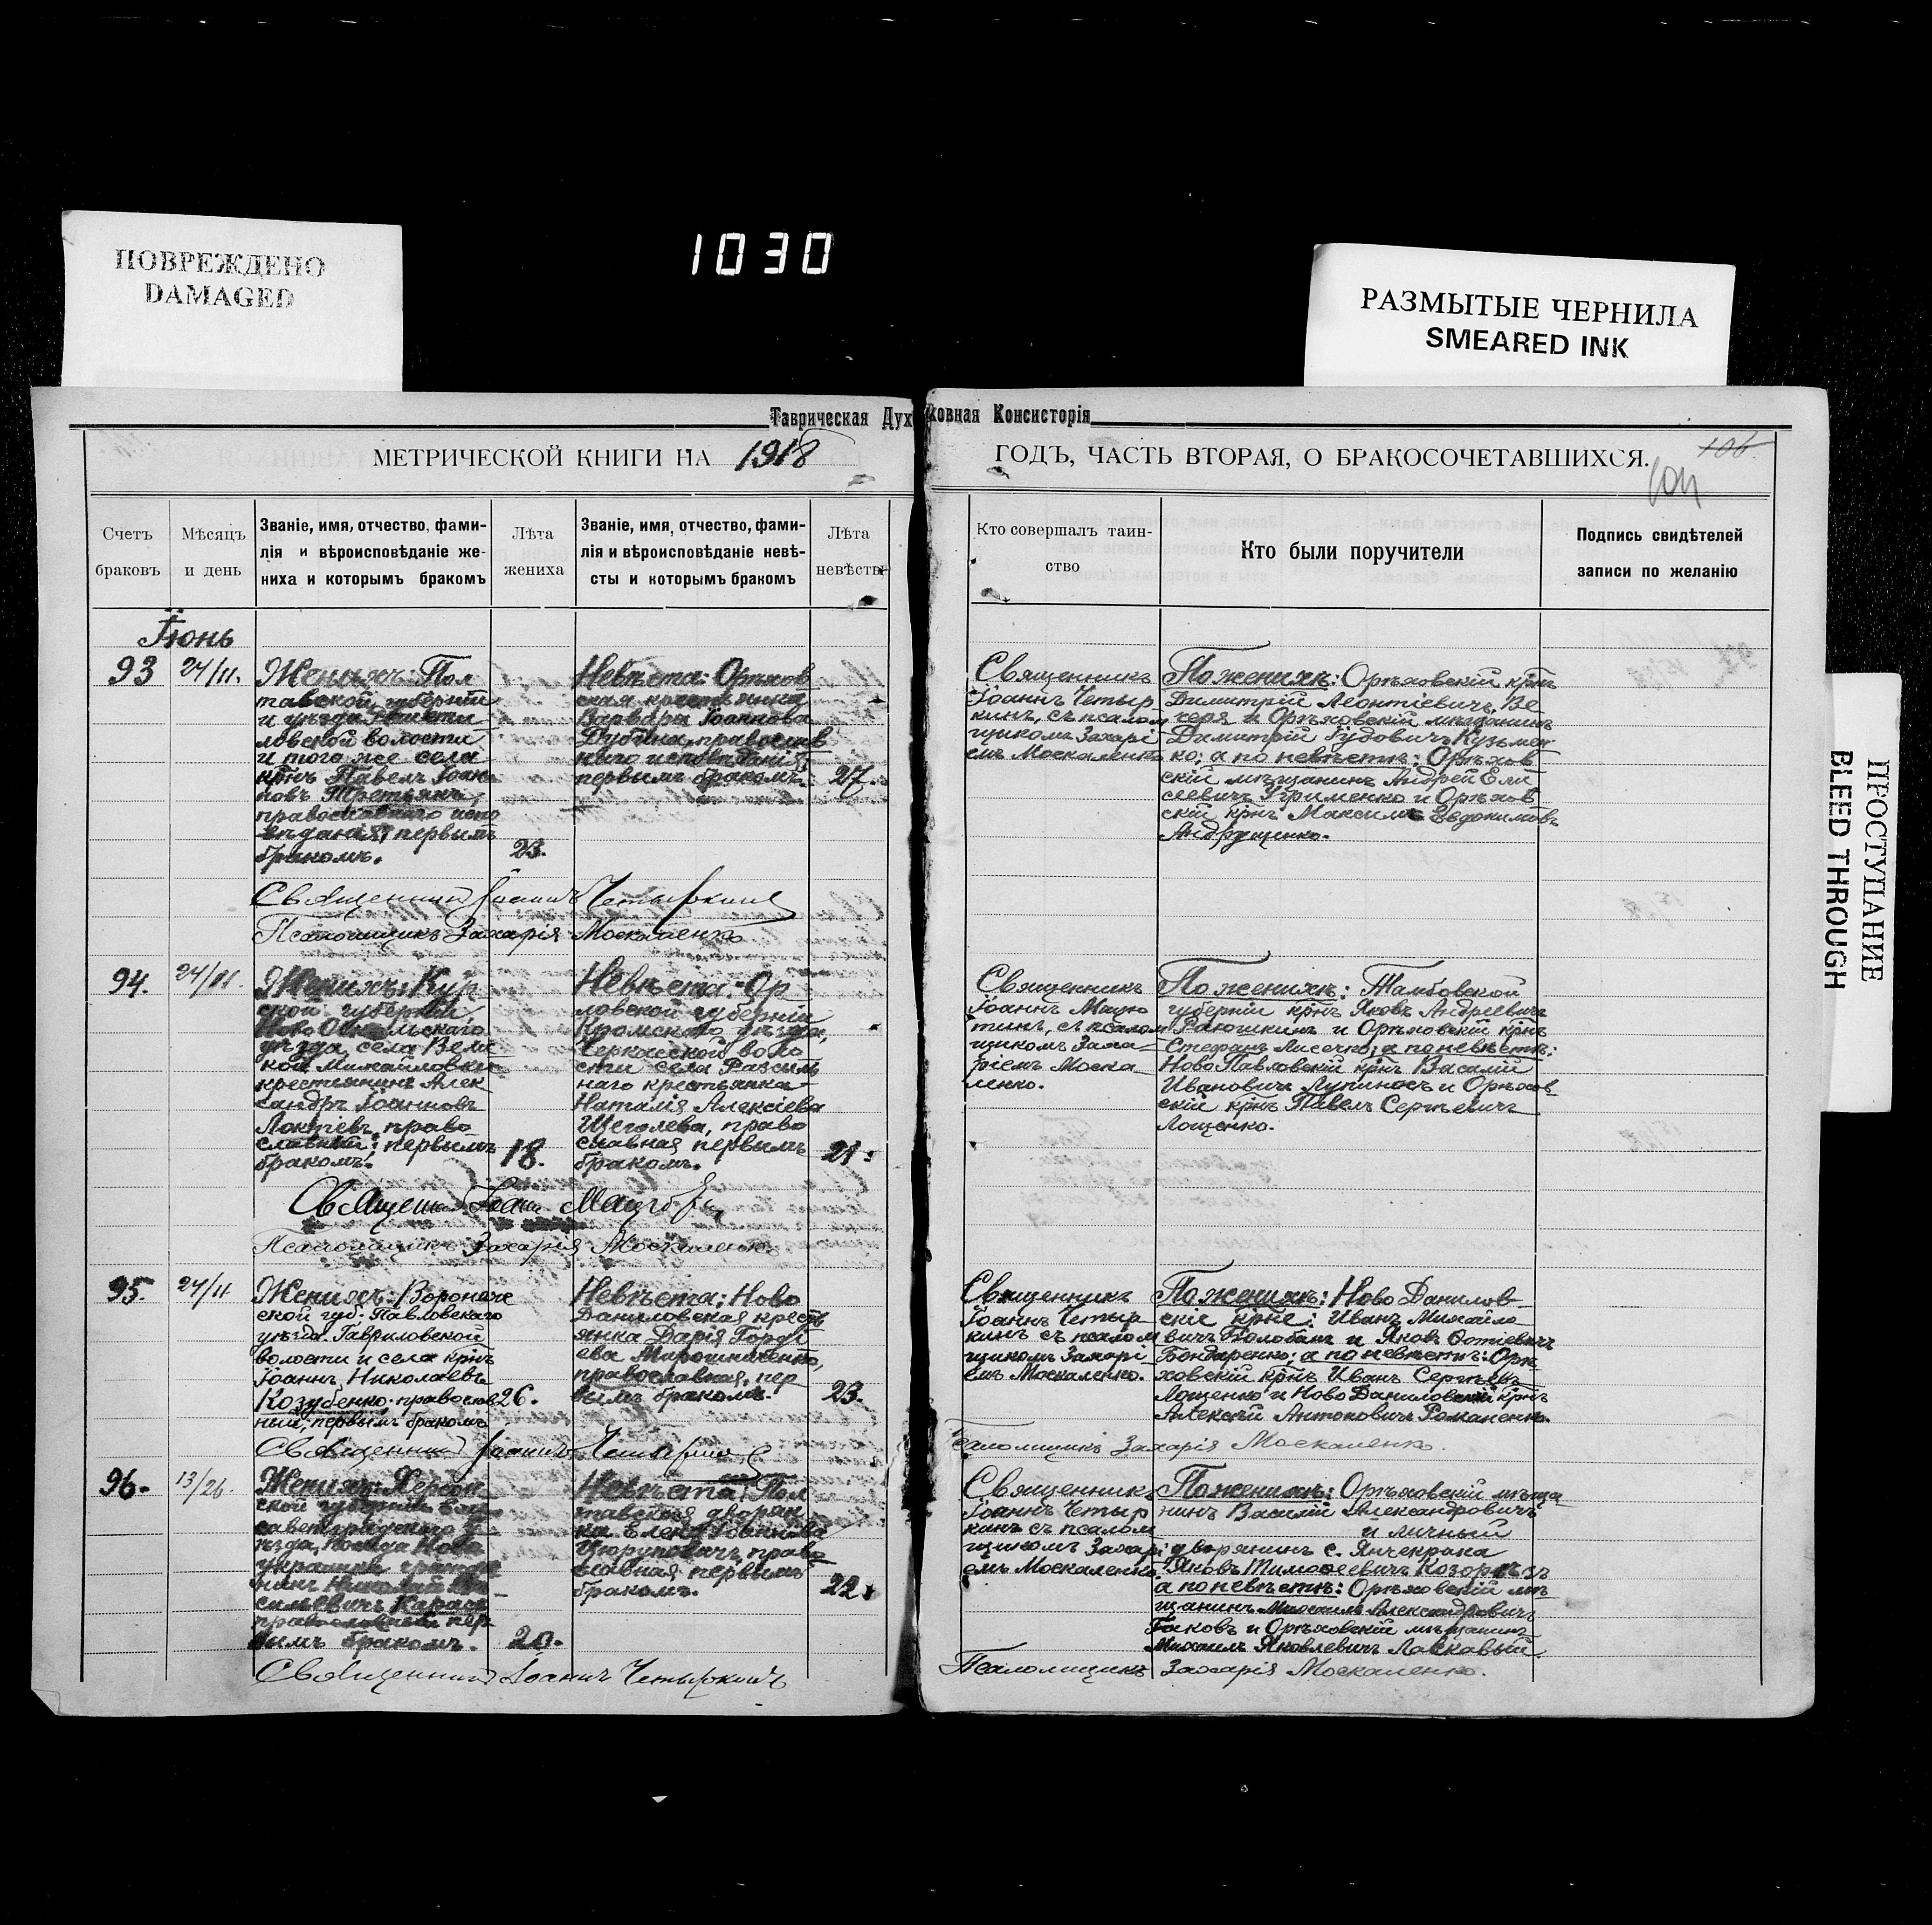 ПОВРЕЖДЕНО
DAMAGED
1030
РАЗМЫТЫЕ ЧЕРНИЛА
SMEARED INK
ПРОСТУПАНИЕ
BLEED THROUGH
Таврическая Духовная Консисторія
МЕТРИЧЕСКОЙ КНИГИ НА 1918
ГОДЪ, ЧАСТЬ ВТОРАЯ, О БРАКОСОЧЕТАВШИХСЯ.
106
104
Счетъ
браковъ
Мѣсяцъ
и день
Званіе, имя, отчество, фами-
лія и вѣроисповѣданіе же-
ниха и которымъ бракомъ
Лѣта
жениха
Званіе, имя, отчество, фами-
лія и вѣроисповѣданіе невѣ-
сты и которымъ бракомъ
Лѣта
невѣсты
Кто совершалъ таин-
ство
Кто были поручители
Подпись свидѣтелей
записи по желанію
Іюнь
93
24/11.
Женихъ: Пол
тавской губерніи
и уѣзда
ловской волости
и того же села
крнъ Павелъ Іоан
новъ Третьякъ,
православнаго испо
вѣданія, первымъ
бракомъ.
23.
Невѣста: Орѣхов
ская крестьянка
Варвара Іоаннова
Дубина, православ
наго исповѣданія,
первымъ бракомъ.
27.
Священникъ
Іоаннъ Четыр
кинъ, съ псалом
щикомъ Захарі
емъ Москаленко
По женихѣ: Орѣховскій крнъ
Димитрій Леонтіевичъ Ве
черя и Орѣховскій мѣщанинъ
Димитрій Кузьмен
ко; а по невѣстѣ: Орѣхов
скій мѣщанинъ Андрей Ели
сеевичъ и Орѣхов
скій крнъ Максимъ Евдокимовъ
Андрущенко.
Священникъ Іоаннъ Четыркинъ
Псаломщикъ Захарія Москаленко
94.
24/11.
Женихъ: Кур
ской губерніи
Ново Оскольскаго
уѣзда, села Вели
кой Михайловки
крестьянинъ Алек
сандръ Іоанновъ
Локтіевъ, право
славный; первымъ
бракомъ.
18.
Невѣста: Ор
ловской губерніи
Кромскаго уѣзда,
Черкасской воло
сти села Разсыль
наго крестьянка
Наталія Алексіева
Щеголева, право
славная первымъ
бракомъ.
21.
Священникъ
Іоаннъ
съ псалом
щикомъ Заха-
ріемъ Моска
ленко.
По женихѣ: Тамбовской
губерніи крнъ Яковъ Андреевичъ
и Орѣховскій крнъ
Стефанъ Лисечко; а по невѣстѣ:
Ново Павловскій крнъ Василій
Ивановичъ Лупиносъ и Орѣхов
скій крнъ Павелъ Сергѣевичъ
Лощенко.
Священникъ Іоаннъ
Псаломщикъ Захарія Москаленко
95.
24/11
Женихъ: Воронеж
ской губ. Павловскаго
уѣзда Гавриловской
волости и села крнъ
Іоаннъ Николаевъ
Козубенко, православ
ный, первымъ бракомъ
26.
Невѣста: Ново
Даниловская кресть
янка Дарія Горді
ева Мирошниченко,
православная, пер
вымъ бракомъ.
23.
Священникъ
Іоаннъ Четыр
кинъ съ псалом
щикомъ Захарі
емъ Москаленко.
По женихѣ: Ново Данилов-
скіе крне: Иванъ Михайло
вичъ Болобанъ и Яковъ Фотіевичъ
Бондаренко; а по невѣстѣ: Орѣ
ховскій крнъ Иванъ Сергѣевъ
Лощенко и Ново Даниловскій крнъ
Алексѣй Антоновичъ Романенко.
Священникъ Іоаннъ Четыркинъ
Псаломщикъ Захарія Москаленко.
96.
13/26.
Женихъ: Херсон
ской губерніи Ели
саветградскаго у
ѣзда, Ново
крнъ Николай Ва
сильевичъ
православный пер
вымъ бракомъ.
20.
Невѣста: Пол
тавская дворян
ка Елена Іоаннова
право
славная первымъ
бракомъ.
22.
Священникъ
Іоаннъ Четыр
кинъ съ псалом
щикомъ Захарі
емъ Москаленко.
По женихѣ: Орѣховскій мѣща
нинъ Василій Александровичъ
и личный
дворянинъ с. Янчекрака
Яковъ Тимоѳеевичъ
а по невѣстѣ: Орѣховскій мѣ
щанинъ Александровичъ
и Орѣховскій мѣщанинъ
Михаилъ Яковлевичъ Ласкавый.
Священникъ Іоаннъ Четыркинъ
Псаломщикъ Захарія Москаленко.